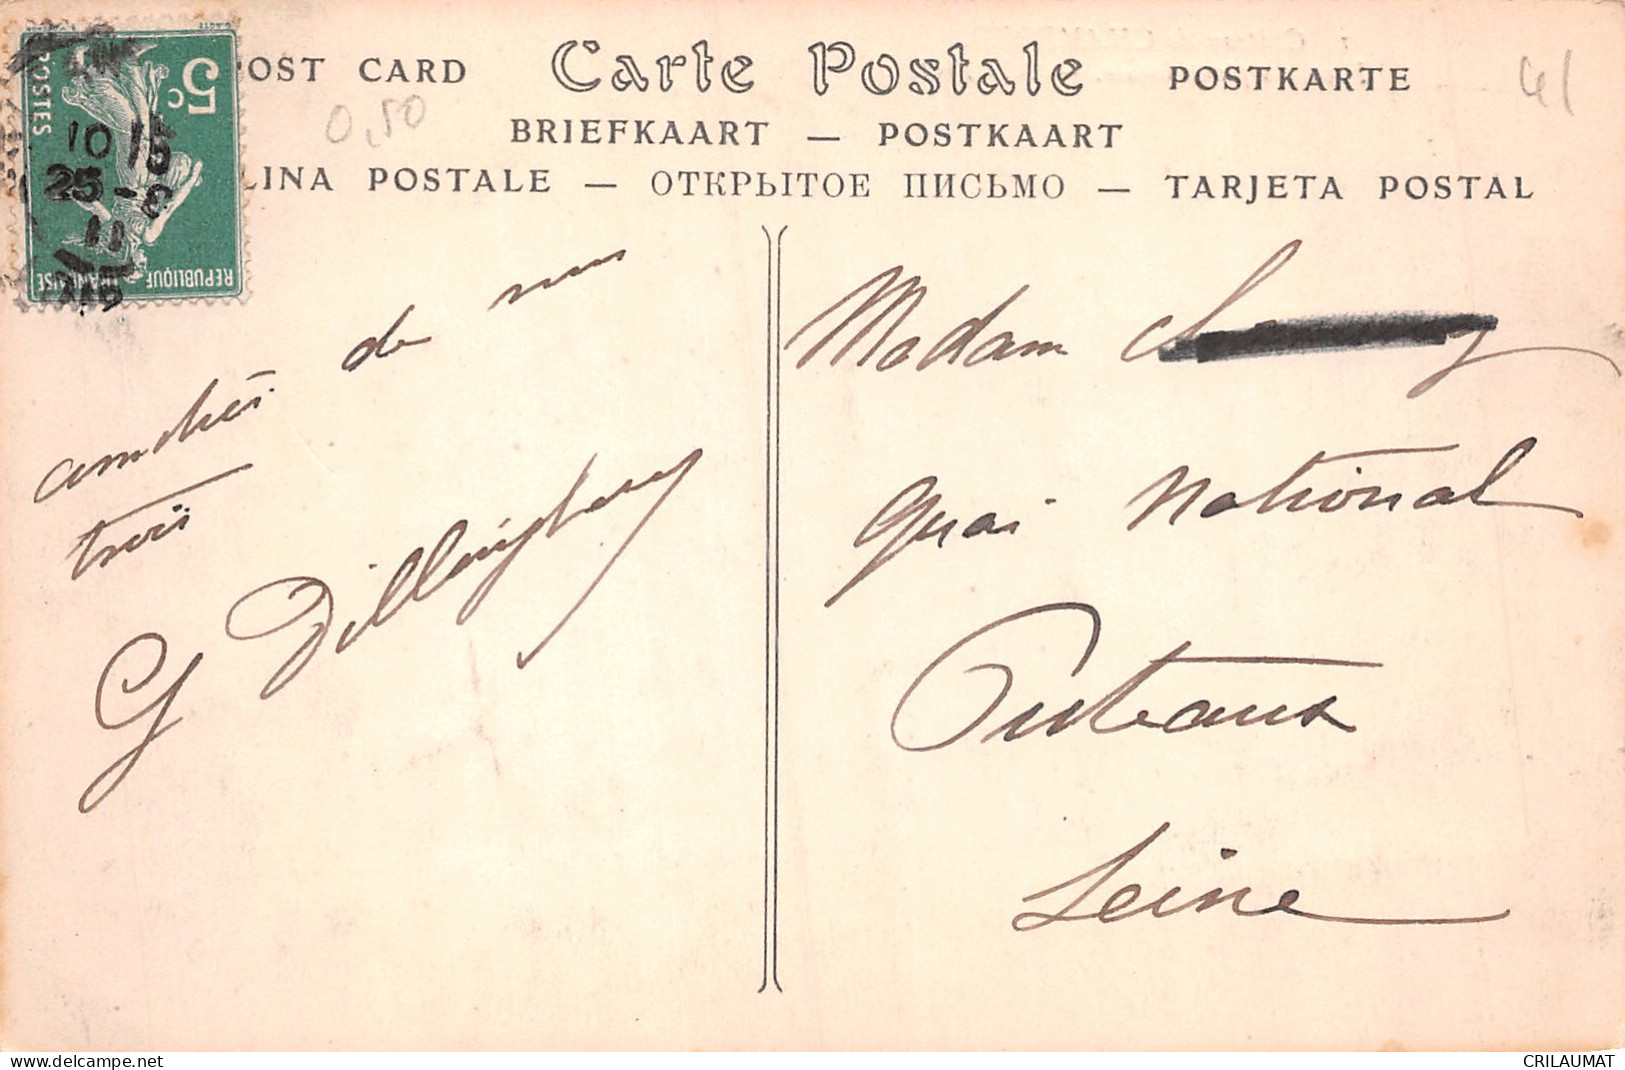 POST CARD Carte Postale POSTKARTE
0,50
41
BRIEFKAART — POSTKAART
LINA POSTALE — ОТКРЫТОЕ ПИСЬМО — TARJETA POSTAL
5c
POSTES
REPUBLIQUE FRANÇAISE
10 15
25 - 8
11
amitiés de nous
trois
G Dillingham
Madam
Quai National
Puteaux
Seine
delcampe.net
CRILAUMAT